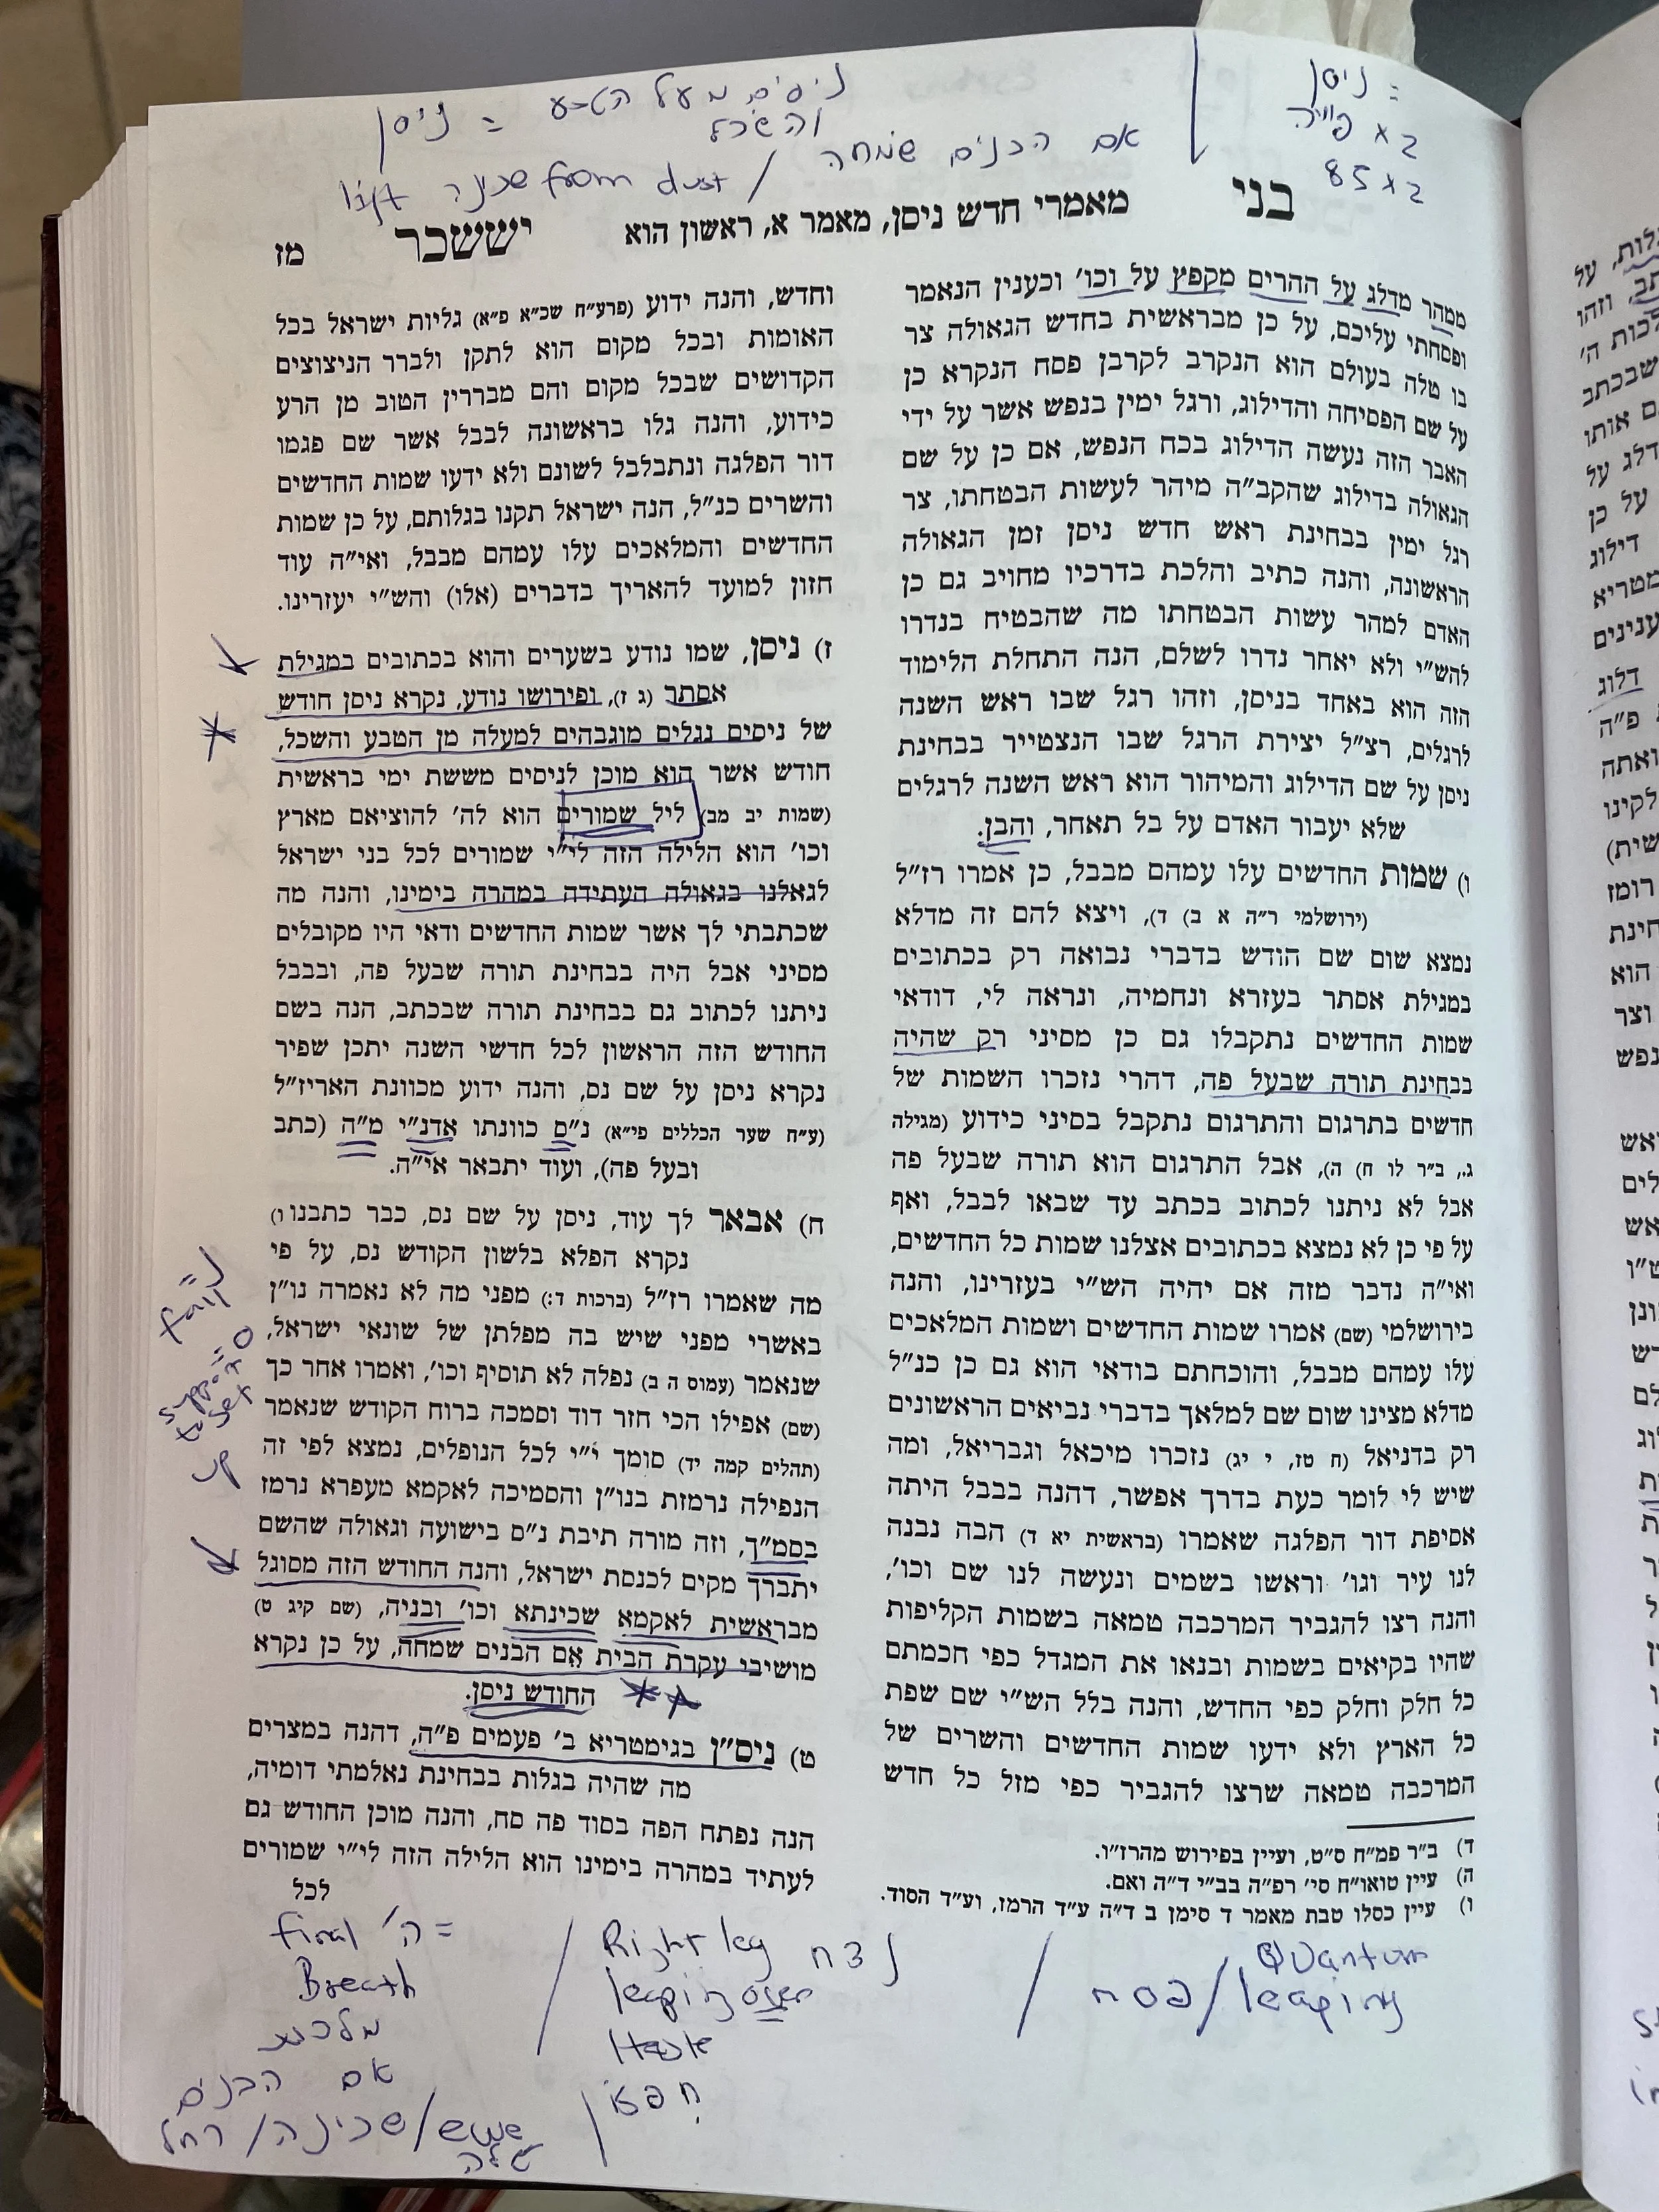 ניסן =
פייה x ב
85 x ב
ניסים מעל הטבע = ניסן
והשכל
אם הבנים שמחה / lift שכינה from dust
בני
מאמרי חדש ניסן, מאמר א, ראשון הוא
יששכר
מז
ממהר מדלג על ההרים מקפץ על וכו' וכענין הנאמר
ופסחתי עליכם, על כן מבראשית בחדש הגאולה צר
בו טלה בעולם הוא הנקרב לקרבן פסח הנקרא כן
על שם הפסיחה והדילוג, ורגל ימין בנפש אשר על ידי
האבר הזה נעשה הדילוג בכח הנפש, אם כן על שם
הגאולה בדילוג שהקב"ה מיהר לעשות הבטחתו, צר
רגל ימין בבחינת ראש חדש ניסן זמן הגאולה
הראשונה, והנה כתיב והלכת בדרכיו מחויב גם כן
האדם למהר עשות הבטחתו מה שהבטיח בנדרו
להש"י ולא יאחר נדרו לשלם, הנה התחלת הלימוד
הזה הוא באחד בניסן, וזהו רגל שבו ראש השנה
לרגלים, רצ"ל יצירת הרגל שבו הנצטייר בבחינת
ניסן על שם הדילוג והמיהור הוא ראש השנה לרגלים
שלא יעבור האדם על בל תאחר, והבן.
ו) שמות החדשים עלו עמהם מבבל, כן אמרו רז"ל
(ירושלמי ר"ה א ב) ד), ויצא להם זה מדלא
נמצא שום שם חודש בדברי נבואה רק בכתובים
במגילת אסתר בעזרא ונחמיה, ונראה לי, דודאי
שמות החדשים נתקבלו גם כן מסיני רק שהיה
בבחינת תורה שבעל פה, דהרי נזכרו השמות של
חדשים בתרגום והתרגום נתקבל בסיני כידוע (מגילה
ג., ב"ר לו ח) ה), אבל התרגום הוא תורה שבעל פה
אבל לא ניתנו לכתוב בכתב עד שבאו לבבל, ואף
על פי כן לא נמצא בכתובים אצלנו שמות כל החדשים,
ואי"ה נדבר מזה אם יהיה הש"י בעזרינו, והנה
בירושלמי (שם) אמרו שמות החדשים ושמות המלאכים
עלו עמהם מבבל, והוכחתם בודאי הוא גם כן כנ"ל
מדלא מצינו שום שם למלאך בדברי נביאים הראשונים
רק בדניאל (ח טז, י יג) נזכרו מיכאל וגבריאל, ומה
שיש לי לומר כעת בדרך אפשר, דהנה בבבל היתה
אסיפת דור הפלגה שאמרו (בראשית יא ד) הבה נבנה
לנו עיר וגו' וראשו בשמים ונעשה לנו שם וכו',
והנה רצו להגביר המרכבה טמאה בשמות הקליפות
שהיו בקיאים בשמות ובנאו את המגדל כפי חכמתם
כל חלק וחלק כפי החדש, והנה בלל הש"י שם שפת
כל הארץ ולא ידעו שמות החדשים והשרים של
המרכבה טמאה שרצו להגביר כפי מזל כל חדש
ד) ב"ר פמ"ח ס"ט, ועיין בפירוש מהרז"ו.
ה) עיין טואו"ח סי' רפ"ה בב"י ד"ה ואם.
ו) עיין כסלו טבת מאמר ד סימן ב ד"ה ע"ד הרמז, וע"ד הסוד.
וחדש, והנה ידוע (פרע"ח שכ"א פ"א) גליות ישראל בכל
האומות ובכל מקום הוא לתקן ולברר הניצוצים
הקדושים שבכל מקום והם מבררין הטוב מן הרע
כידוע, והנה גלו בראשונה לבבל אשר שם פגמו
דור הפלגה ונתבלבל לשונם ולא ידעו שמות החדשים
והשרים כנ"ל, הנה ישראל תקנו בגלותם, על כן שמות
החדשים והמלאכים עלו עמהם מבבל, ואי"ה עוד
חזון למועד להאריך בדברים (אלו) והש"י יעזרינו.
ז) ניסן, שמו נודע בשערים והוא בכתובים במגילת
אסתר (ג ז), ופירושו נודע, נקרא ניסן חודש
של ניסים נגלים מוגבהים למעלה מן הטבע והשכל,
חודש אשר הוא מוכן לניסים מששת ימי בראשית
(שמות יב מב) ליל שמורים הוא לה' להוציאם מארץ
וכו' הוא הלילה הזה לי"י שמורים לכל בני ישראל
לגאלנו בגאולה העתידה במהרה בימינו, והנה מה
שכתבתי לך אשר שמות החדשים ודאי היו מקובלים
מסיני אבל היה בבחינת תורה שבעל פה, ובבבל
ניתנו לכתוב גם בבחינת תורה שבכתב, הנה בשם
החודש הזה הראשון לכל חדשי השנה יתכן שפיר
נקרא ניסן על שם נס, והנה ידוע מכוונת האריז"ל
(ע"ח שער הכללים פי"א) נ"ם כוונתו אדנ"י מ"ה (כתב
ובעל פה), ועוד יתבאר אי"ה.
ח) אבאר לך עוד, ניסן על שם נס, כבר כתבנו ו)
נקרא הפלא בלשון הקודש נס, על פי
מה שאמרו רז"ל (ברכות ד:) מפני מה לא נאמרה נו"ן
באשרי מפני שיש בה מפלתן של שונאי ישראל,
שנאמר (עמוס ה ב) נפלה לא תוסיף וכו', ואמרו אחר כך
(שם) אפילו הכי חזר דוד וסמכה ברוח הקודש שנאמר
(תהלים קמה יד) סומך י"י לכל הנופלים, נמצא לפי זה
הנפילה נרמזת בנו"ן והסמיכה לאקמא מעפרא נרמז
בסמ"ך, וזה מורה תיבת נ"ס בישועה וגאולה שהשם
יתברך מקים לכנסת ישראל, והנה החודש הזה מסוגל
מבראשית לאקמא שכינתא וכו' ובניה, (שם קיג ט)
מושיבי עקרת הבית אם הבנים שמחה, על כן נקרא
החודש ניסן.
ט) ניס"ן בגימטריא ב' פעמים פ"ה, דהנה במצרים
מה שהיה בגלות בבחינת נאלמתי דומיה,
הנה נפתח הפה בסוד פה סח, והנה מוכן החודש גם
לעתיד במהרה בימינו הוא הלילה הזה לי"י שמורים
לכל
נ"
fall
ס"
support
to get
up
Quantum
leaping / פסח /
נצח Right leg
leaping over
Haste
חפזו
/ final ה' =
Breath
מלכות
אם הבנים
רחל / שכינה /